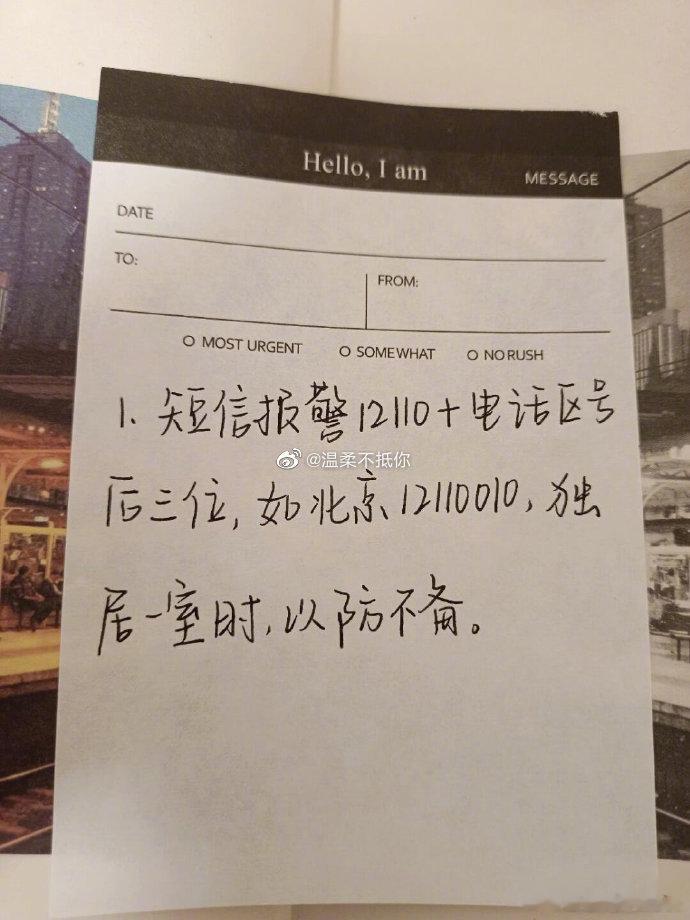 Hello, I am
MESSAGE
DATE
TO:
FROM:
MOST URGENT
SOMEWHAT
NO RUSH
1. 短信报警12110+电话区号
@温柔不抵你
后三位,如北京12110010,独
居一室时,以防不备。